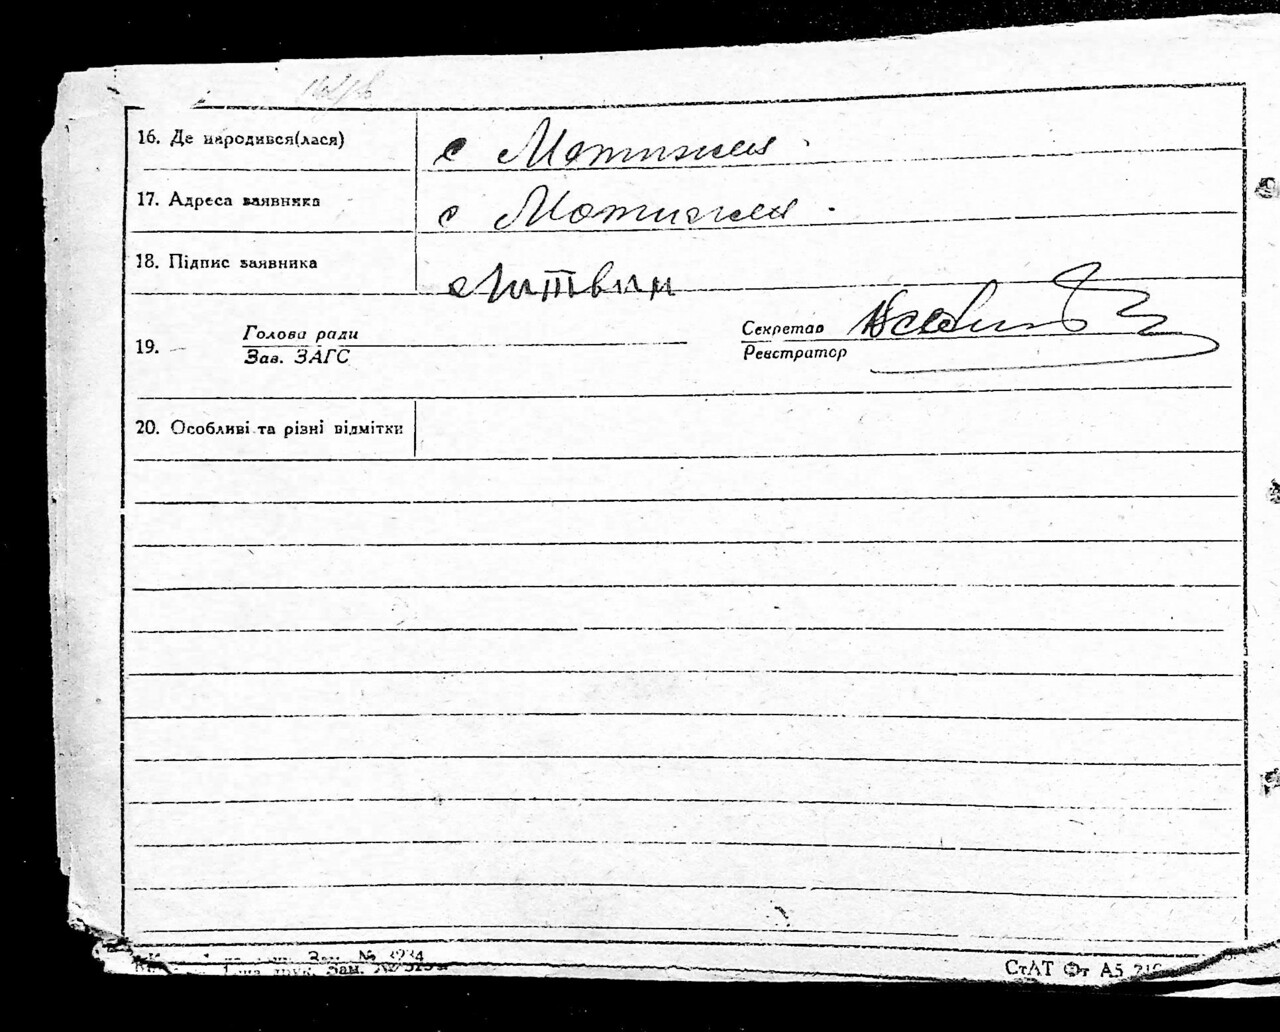 16. Де народився(лася) с Мотижин.
17. Адреса заявника с Мотижин.
18. Підпис заявника Литвин
19. Голова ради Секретар
Зав. ЗАГС Реєстратор
20. Особливі та різні відмітки
Зам. № 3234
Зам. №
СтАТ Фт А5